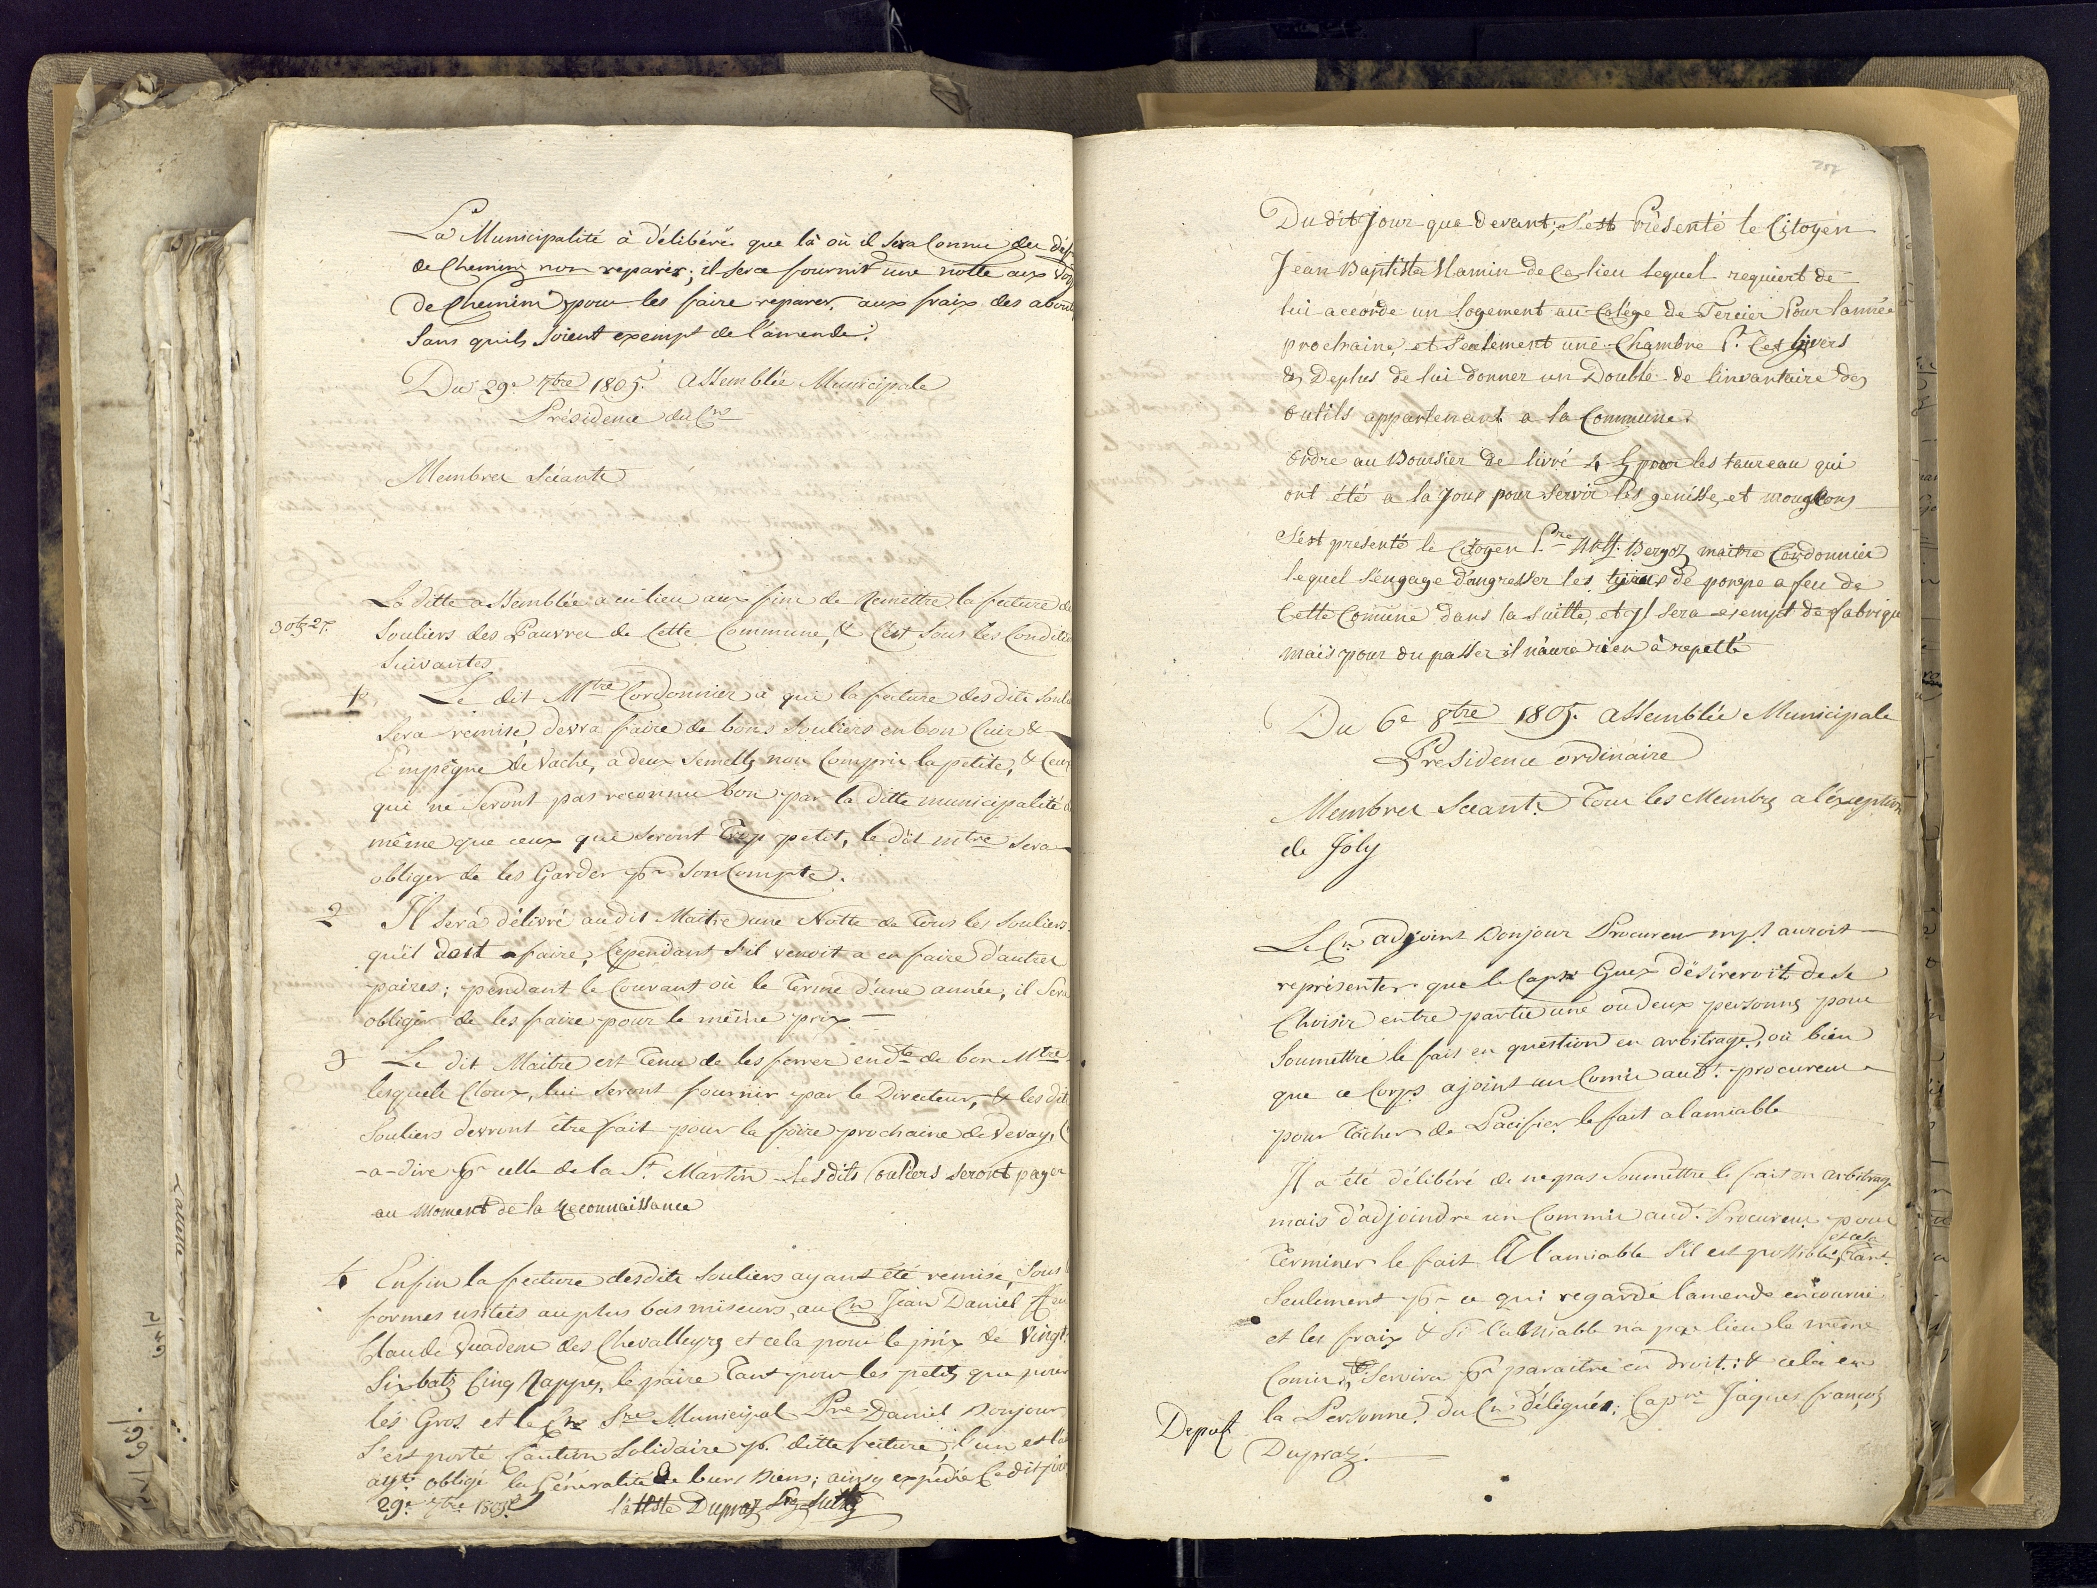 La Municipalité à délibéré que là où il sera Connu des
de Chemins non reparés; il sera fournit une notte aux
de Chemins pour les faire reparer aux fraix des
Sans quils soient exempt de l'amende.
Du 29e 7bre 1805. Assemblée Municipale
Présidence du Cn
Membres Séants
La ditte assemblée a eu lieu aux fins de Remettre la facture de
30 btz 2 r.
souliers des Pauvres de Cette Commune, & C'est sous les Conditions
suivantes
1°
Le dit Mtre Cordonnier a qui la facture desdits
sera remise devra faire de bons souliers en bon Cuir &
Empêgne de Vache, à deux semelles non Compris la petite, & Ceux
qui ne seront pas reconnu bon par la ditte municipalité
même que ceux que seront Trop petit, le dit mtre sera
obliger de les Garder pr son Compte.
2
Il sera délivré audit Maitre une Notte de Tous les souliers
qu'il doit a faire, Cependant s'il venoit a en faire d'autres
paires; pendant le Courant où le Terme d'une année, il sera
obligé de les faire pour le même prix —
3
Le dit Maitre est Tenu de les ferrer en dte de bon Mtre
lesquels Cloux, lui seront fournir par le Directeur, & les dits
souliers devront être fait pour la foire prochaine de Vevay,
-a-dire pr celle de la St. Martin. Lesdits souliers seront payer
au Moment de la Reconnaissance
4
Enfin la facture desdits souliers ayant été remise, sous
formes usitées au plus bas miseurs, au Cn Jean Daniel
Claude des Chevalleyrs et cela pour le prix de Vingt
Six batz Cinq Rappes, le paire Tant pour les petits que pour
les Gros. et le Cn Sre Municipal Pre Daniel Bonjour
S'est porté Caution Solidaire pr. ditte facture, l'un et
ayt obligé la Généralité de leurs Biens; ainsy expédié Ce dit jour
29e 7bre 1805. l'atteste Dupraz
Du dit Jour que devant; S'est Présenté le Citoyen
Jean Baptiste Mamin de Ce lieu Lequel requiert de
lui accorde un logement au Colège de Tercier Pour l'année
prochaine, et seulement une Chambre Pr. Cet hivers
& Deplus de lui donner un Double de linvantaire des
outils appartenant a la Commune.
Ordre au Boursier de livré 4 pour les taureau qui
ont été a la Joux pour servir les genisse, et mougeons
S'est présenté le Citoyen Pre Bergoz maitre Cordonnier
lequel s'engage d'angresser les tuiaux de pompe a feu de
Cette Comune dans la suitte, et Il sera exempt de fabrique
mais pour du passer il n'aura rien à repetté
Du 6e 8bre 1805. Assemblée Municipale
Presidence ordinaire
Membres Séants Tous les Membres a l'exeption
de Joly
Le Cn adjoint Bonjour Procureur mpl auroit
représenter que le Capne Guex Désireroit de se
Choisir entre partie une ou deux personnes pour
Soumettre le fait en question en arbitrage, où bien
que ce Corps ajoint un Comis audt. procureur
pour Tâcher de Pacifier le fait a lamiable
Il a été délibéré de ne pas soumettre le fait en arbitrage
mais d'adjoindre un Commis audt. Procureur pour
et cela
Terminer le fait A l'amiable s'il est possible, Tant
Seulement pr ce qui regarde l'amende encourue
et les fraix & si l'amiable n'a pas lieu le même
Comis, servira pr paraitre en droit: & cela en
la Personne du Cn délégués: Capne Jaques françois
Deput
Dupraz.